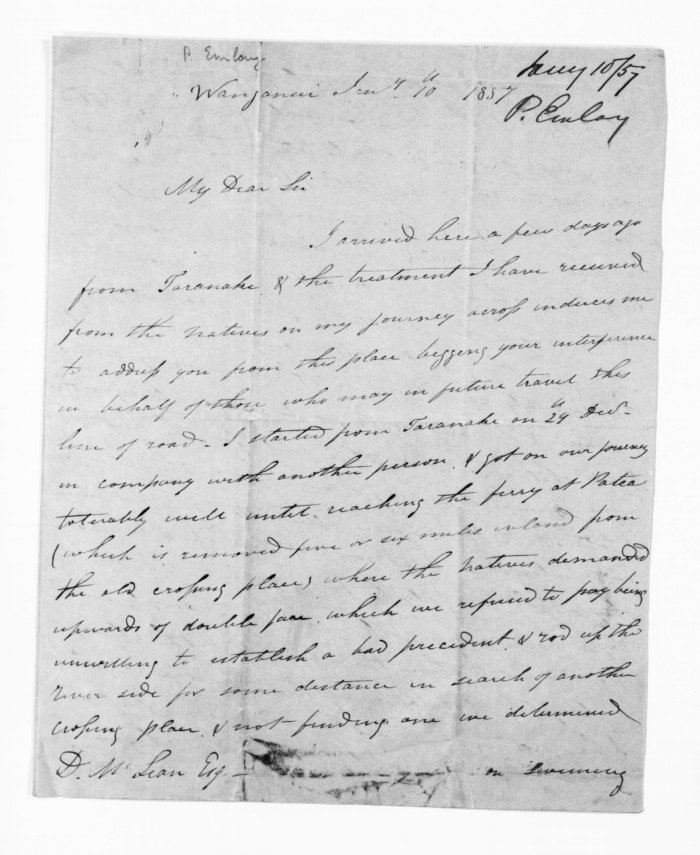 P. Emlay.
Jany 10/57
P. Emlay
Wanganui Jany. 10th 1857
My Dear Sir
I arrived here a few days ago
from Taranake & the treatment I have received
from the natives on my journey across induces me
to address you from this place begging your interference
in behalf of those who may in future travel this
line of road. I started from Taranake on 29th Decr.
in company with another person. & got on our journey
tolerably well until reaching the ferry at Patea
(which is removed five or six miles inland from
the old crossing place) where the natives demanded
upwards of double fare. which we refused to pay being
unwilling to establish a bad precedent. & rod up the
river side for some distance in search of another
crossing place. & not finding one we determined
D. McLean Esq on swimming